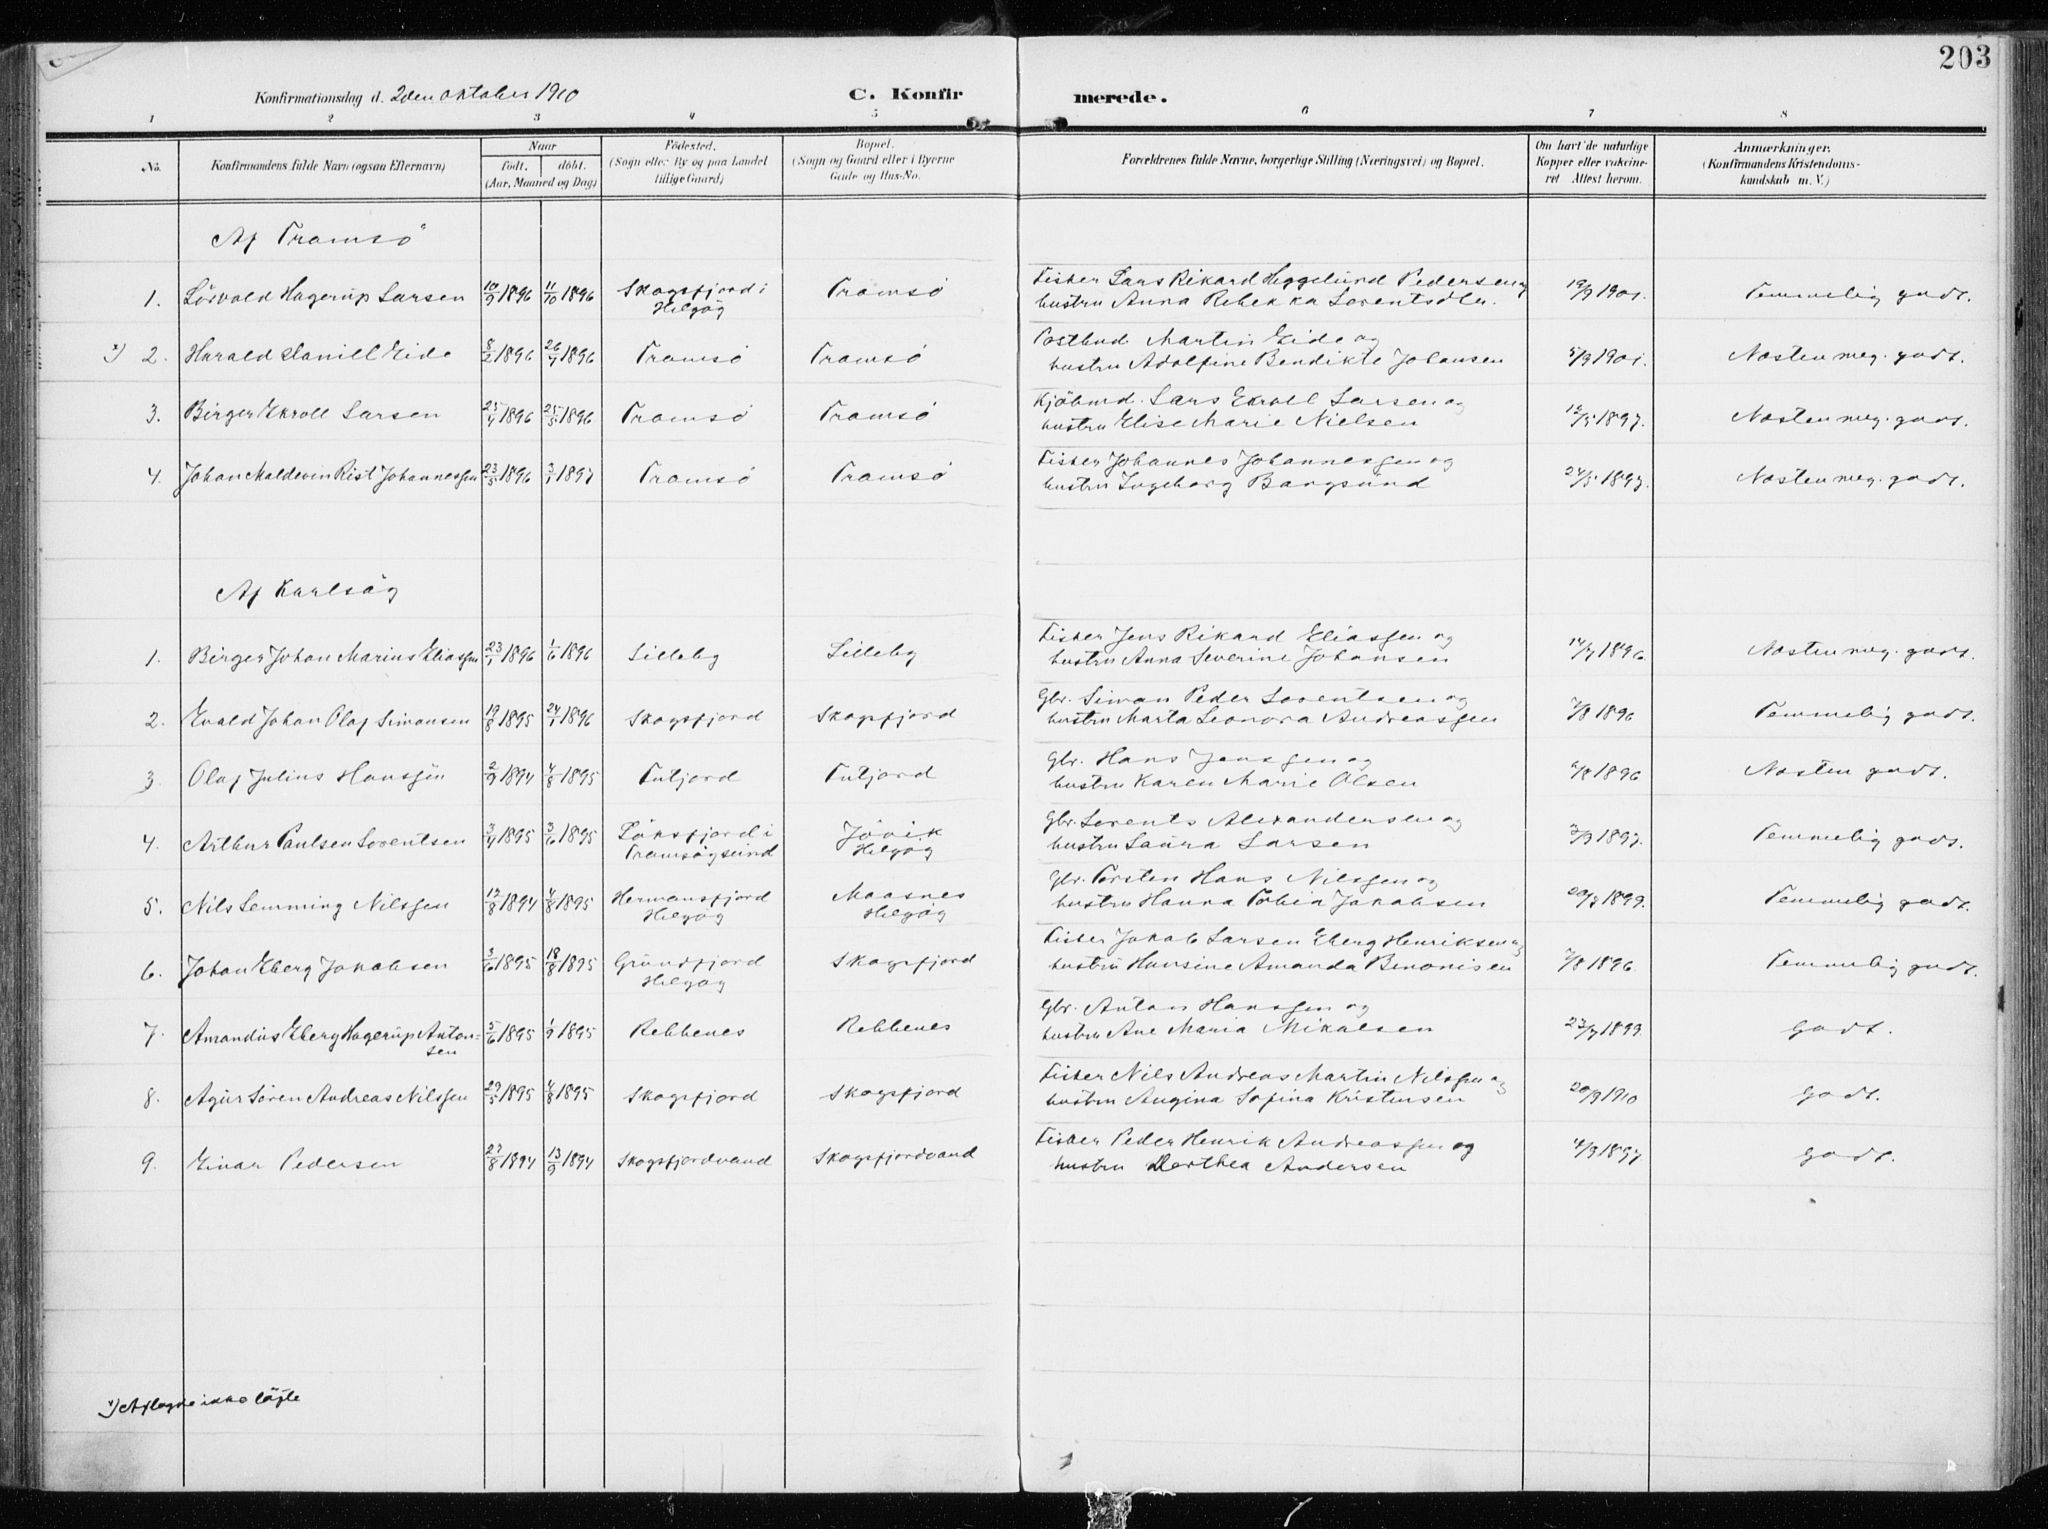 203
Konfirmationsdag d. 2den oktober 1910 C. Konfirmerede.
1 2 3 4 5 6 7 8
No. Konfirmandens fulde Navn (ogsaa Efternavn) Naar født, døbt. (Aar, Maaned og Dag) Fødested. (Sogn eller By og paa Landet tillige Gaard) Bopæl. (Sogn og Gaard eller i Byerne Gade og Hus-No. Forældrenes fulde Navne, borgerlige Stilling (Næringsvei) og Bopæl. Om havt de naturlige Kopper eller vakcineret Attest herom. Anmærkninger. (Konfirmandens Kristendomskundskab m. V.)
Af Tromsö
1. Lörvald Hagerup Larsen 10/9 1896 11/10 1896 Skogsfjord i Helgöy Tromsö Fisker Lars Rikard Heggelund Pedersen og hustru Anna Rebekka Lorentsdtr. 19/9 1901. Temmelig godt.
x) 2. Harald Daniel Eide 8/2 1896 26/7 1896 Tromsö Tromsö Postbud Martin Eide og hustru Adolfine Bendikte Johansen 5/9 1901. Næsten meg. godt.
3. Birger Ekroll Larsen 25/4 1896 25/5 1896 Tromsö Tromsö Kjöbmd. Lars Ekroll Larsen og hustru Elise Marie Nielsen 12/5 1897. Næsten meg. godt.
4. Johan Maldevin Rist Johannessen 23/5 1896 3/1 1897 Tromsö Tromsö Fisker Johannes Johannessen og hustru Ingeborg Bangsund 24/5 1897. Næsten meg. godt.
Af Karlsöy
1. Birger Johan Marius Eliassen 23/1 1896 1/6 1896 Lilleby Lilleby Fisker Jens Rikard Eliassen og hustru Anna Severine Johansen 14/7 1896. Næsten meg. godt.
2. Evald Johan Olaf Simonsen 19/8 1895 24/1 1896 Skogsfjord Skogsfjord Gbr. Simon Peder Lorentsen og hustru Marta Leonora Andreassen 7/8 1896 Temmelig godt.
3. Olaf Julius Hanssen 2/9 1894 4/8 1895 Futjord Futjord Gbr. Hans Jenssen og hustru Karen Marie Olsen 6/8 1896 Næsten godt.
4. Arthur Paulsen Lorentsen 3/4 1895 3/6 1895 Löksfjord i Tromsöysund Jövik Helgöy Gbr. Lorents Alexandersen og hustru Laura Larsen 2/9 1897. Temmelig godt.
5. Nils Lemming Nilssen 12/8 1894 4/8 1895 Hermansfjord Helgöy Maasnes Helgöy Gbr. Torsten Hans Nilssen og hustru Hanna Tobia Jakobsen 20/9 1899. Temmelig godt.
6. Johan Eberg Jakobsen 3/6 1895 18/8 1895 Grundfjord Helgöy Skogsfjord Fisker Jakob Larsen Eberg Henriksen og hustru Hansine Amanda Benonisen 7/8 1896. Temmelig godt.
7. Amandus Eberg Hagerup Antonsen 5/6 1895 1/9 1895 Rebbenes Rebbenes Gbr. Anton Hanssen og hustru Ane Maria Mikalsen 23/7 1899. Godt.
8. Agur Sören Andreas Nilssen 29/5 1895 4/8 1895 Skogsfjord Skogsfjord Fisker Nils Andreas Martin Nilssen og hustru Augina Sofina Kristensen 20/9 1910 Godt.
9. Einar Pedersen 27/8 1894 13/9 1894 Skogsfjordvand Skogsfjordvand Fisker Peder Henrik Andreassen og hustru Dorthea Andersen 4/9 1897 Godt.
x) Aflagde ikke löfte